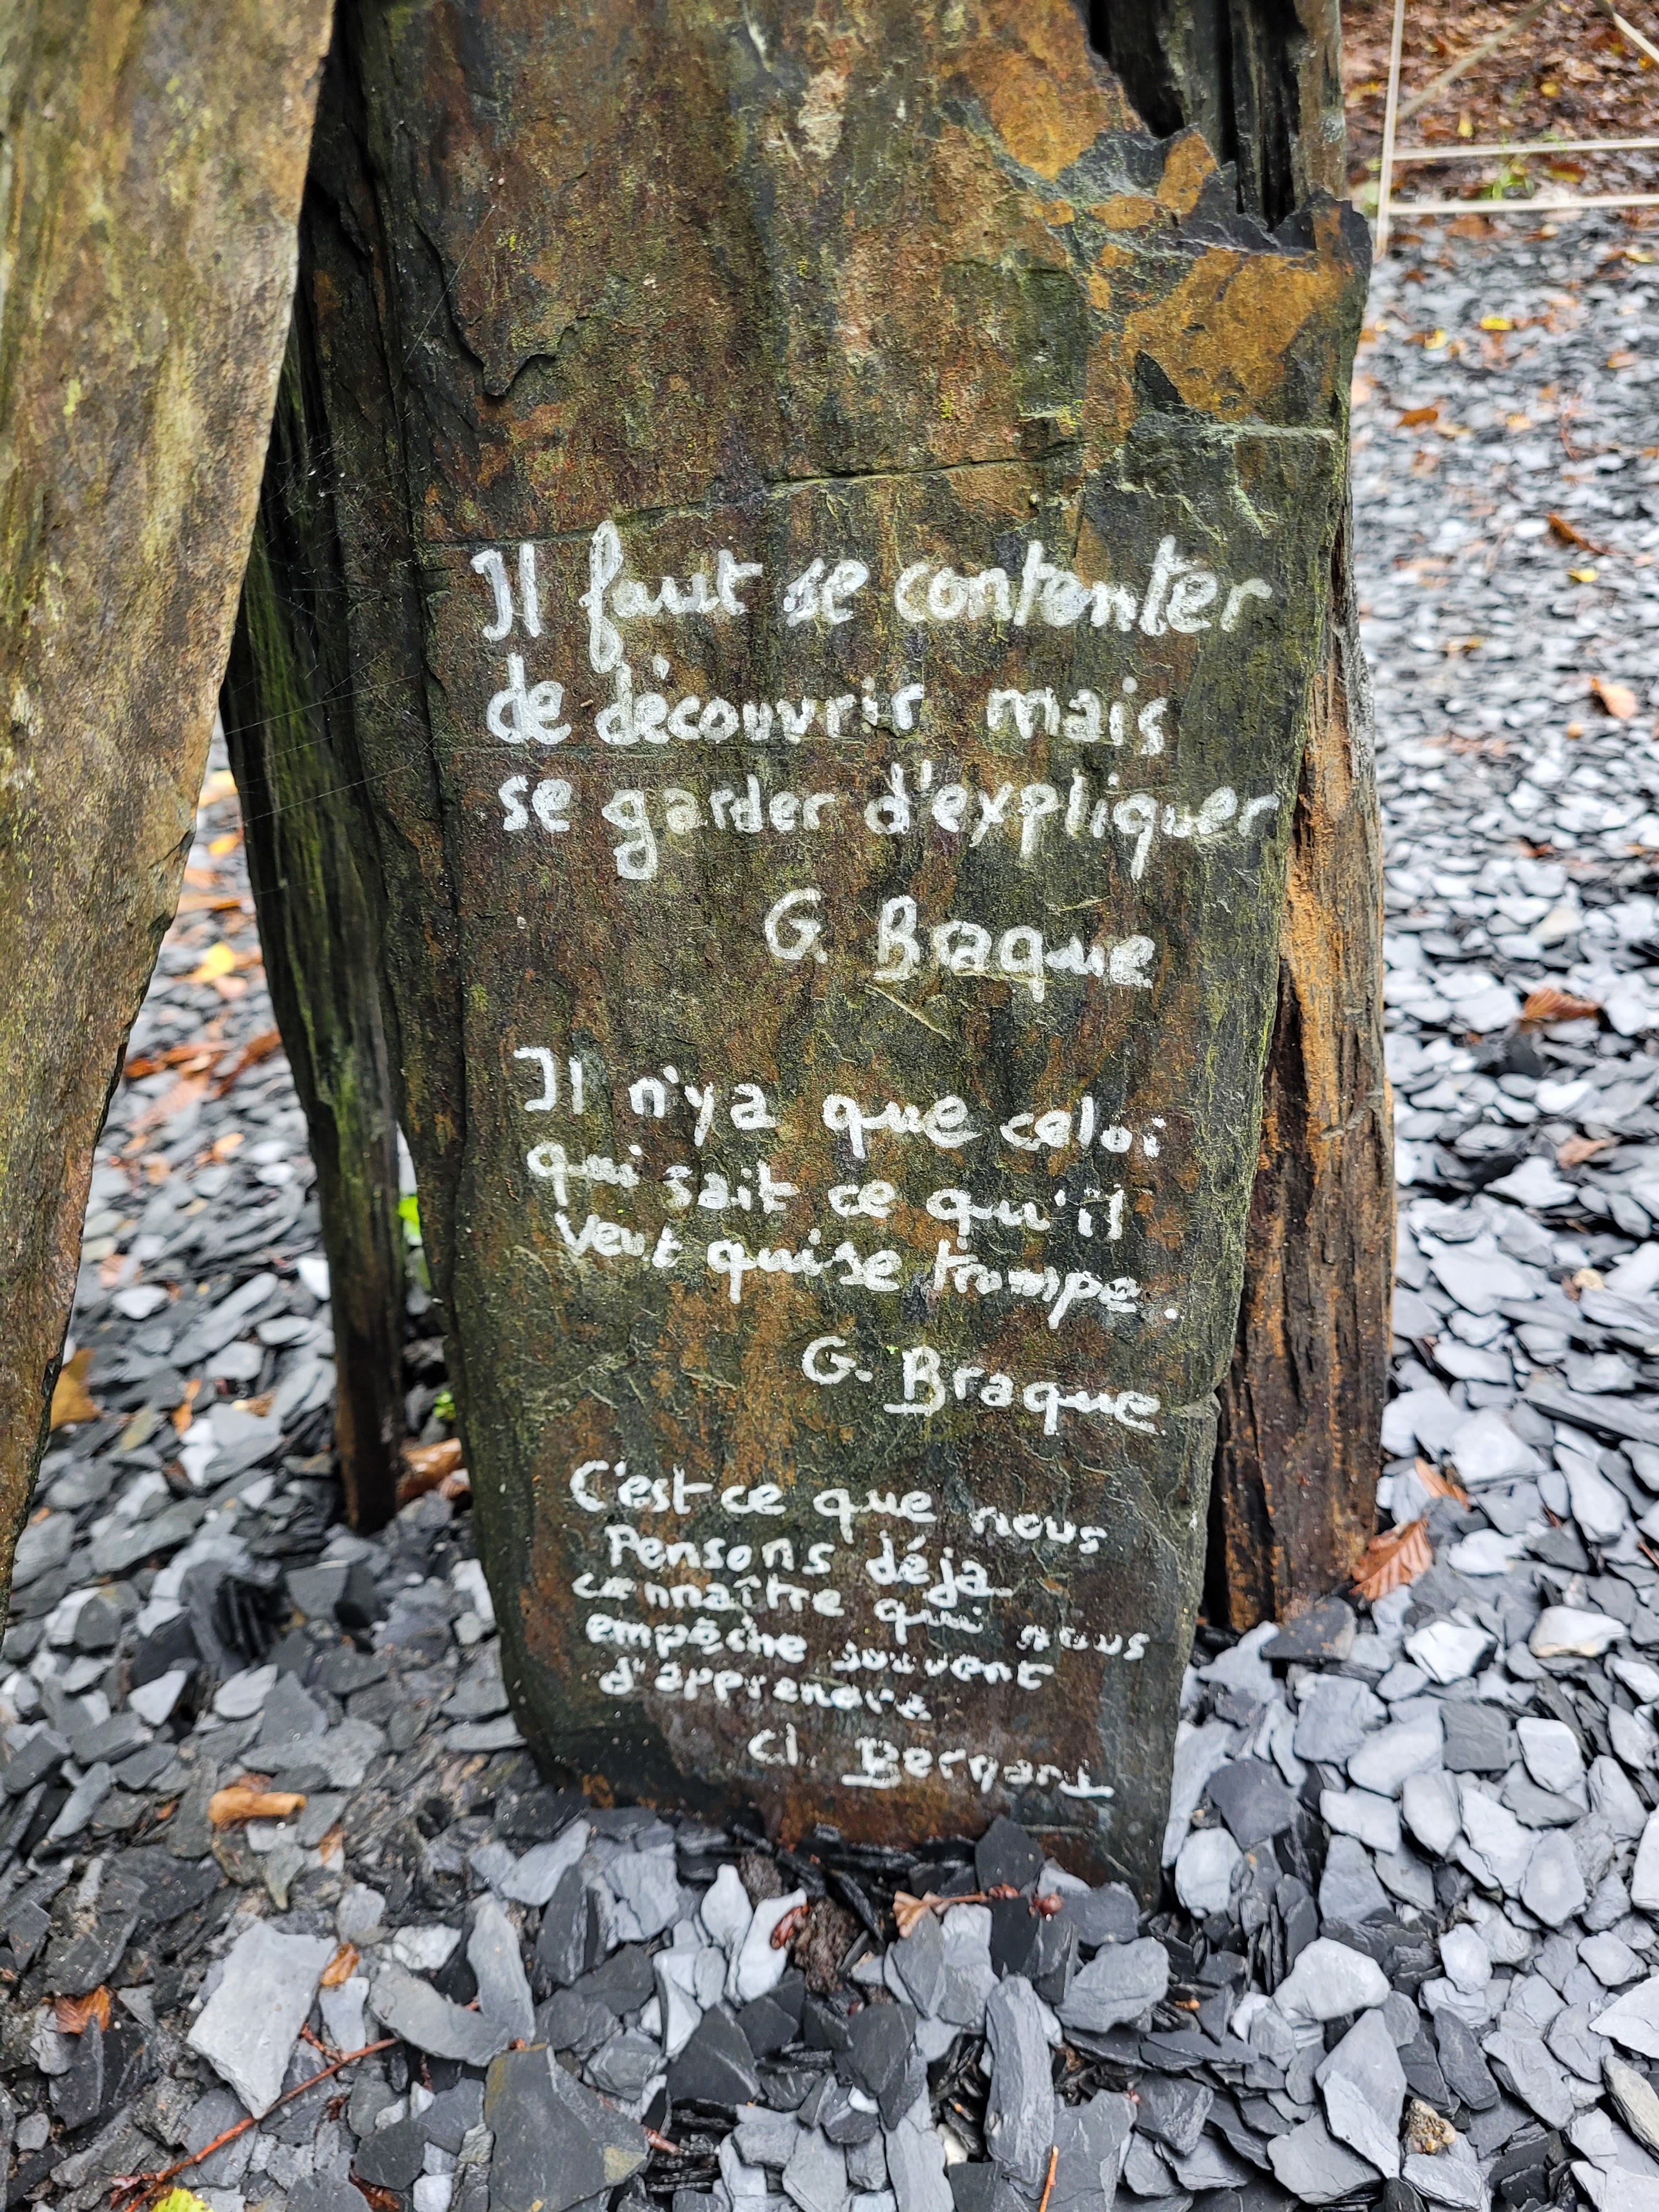 Il faut se contenter
de découvrir mais
se garder d'expliquer
G. Braque
Il n'ya que celui
qui sait ce qu'il
veut qui se trompe.
G. Braque
C'est ce que nous
Pensons déja
connaître qui nous
empêche souvent
d'apprendre
Cl. Bernard